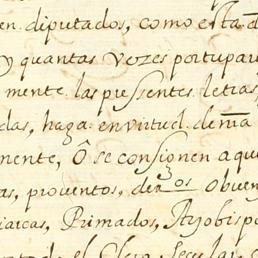 en diputados, como esta d
y quantas vezes por tu par
mente las pressentes letras,
das, haga en virtud de mã
nente, Ô se consionen a que
as, proventos, der^os Obuen
iarcas, Primados, Arzobispo
el Clero Secular,